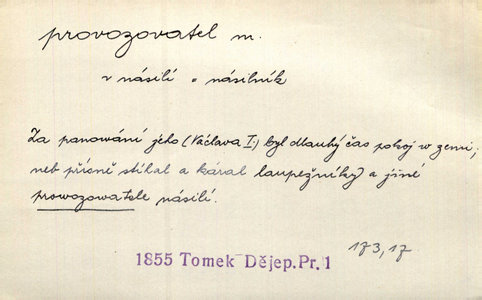 provozovatel m.
v násilí = násilník
Za panowání jeho (Václava I.) byl dlauhý čas pokoj w zemi;
neb přísně stíhal a káral laupežníky a jiné
prowozowatele násilí.
173,17
1855 Tomek Dějep.Pr.1